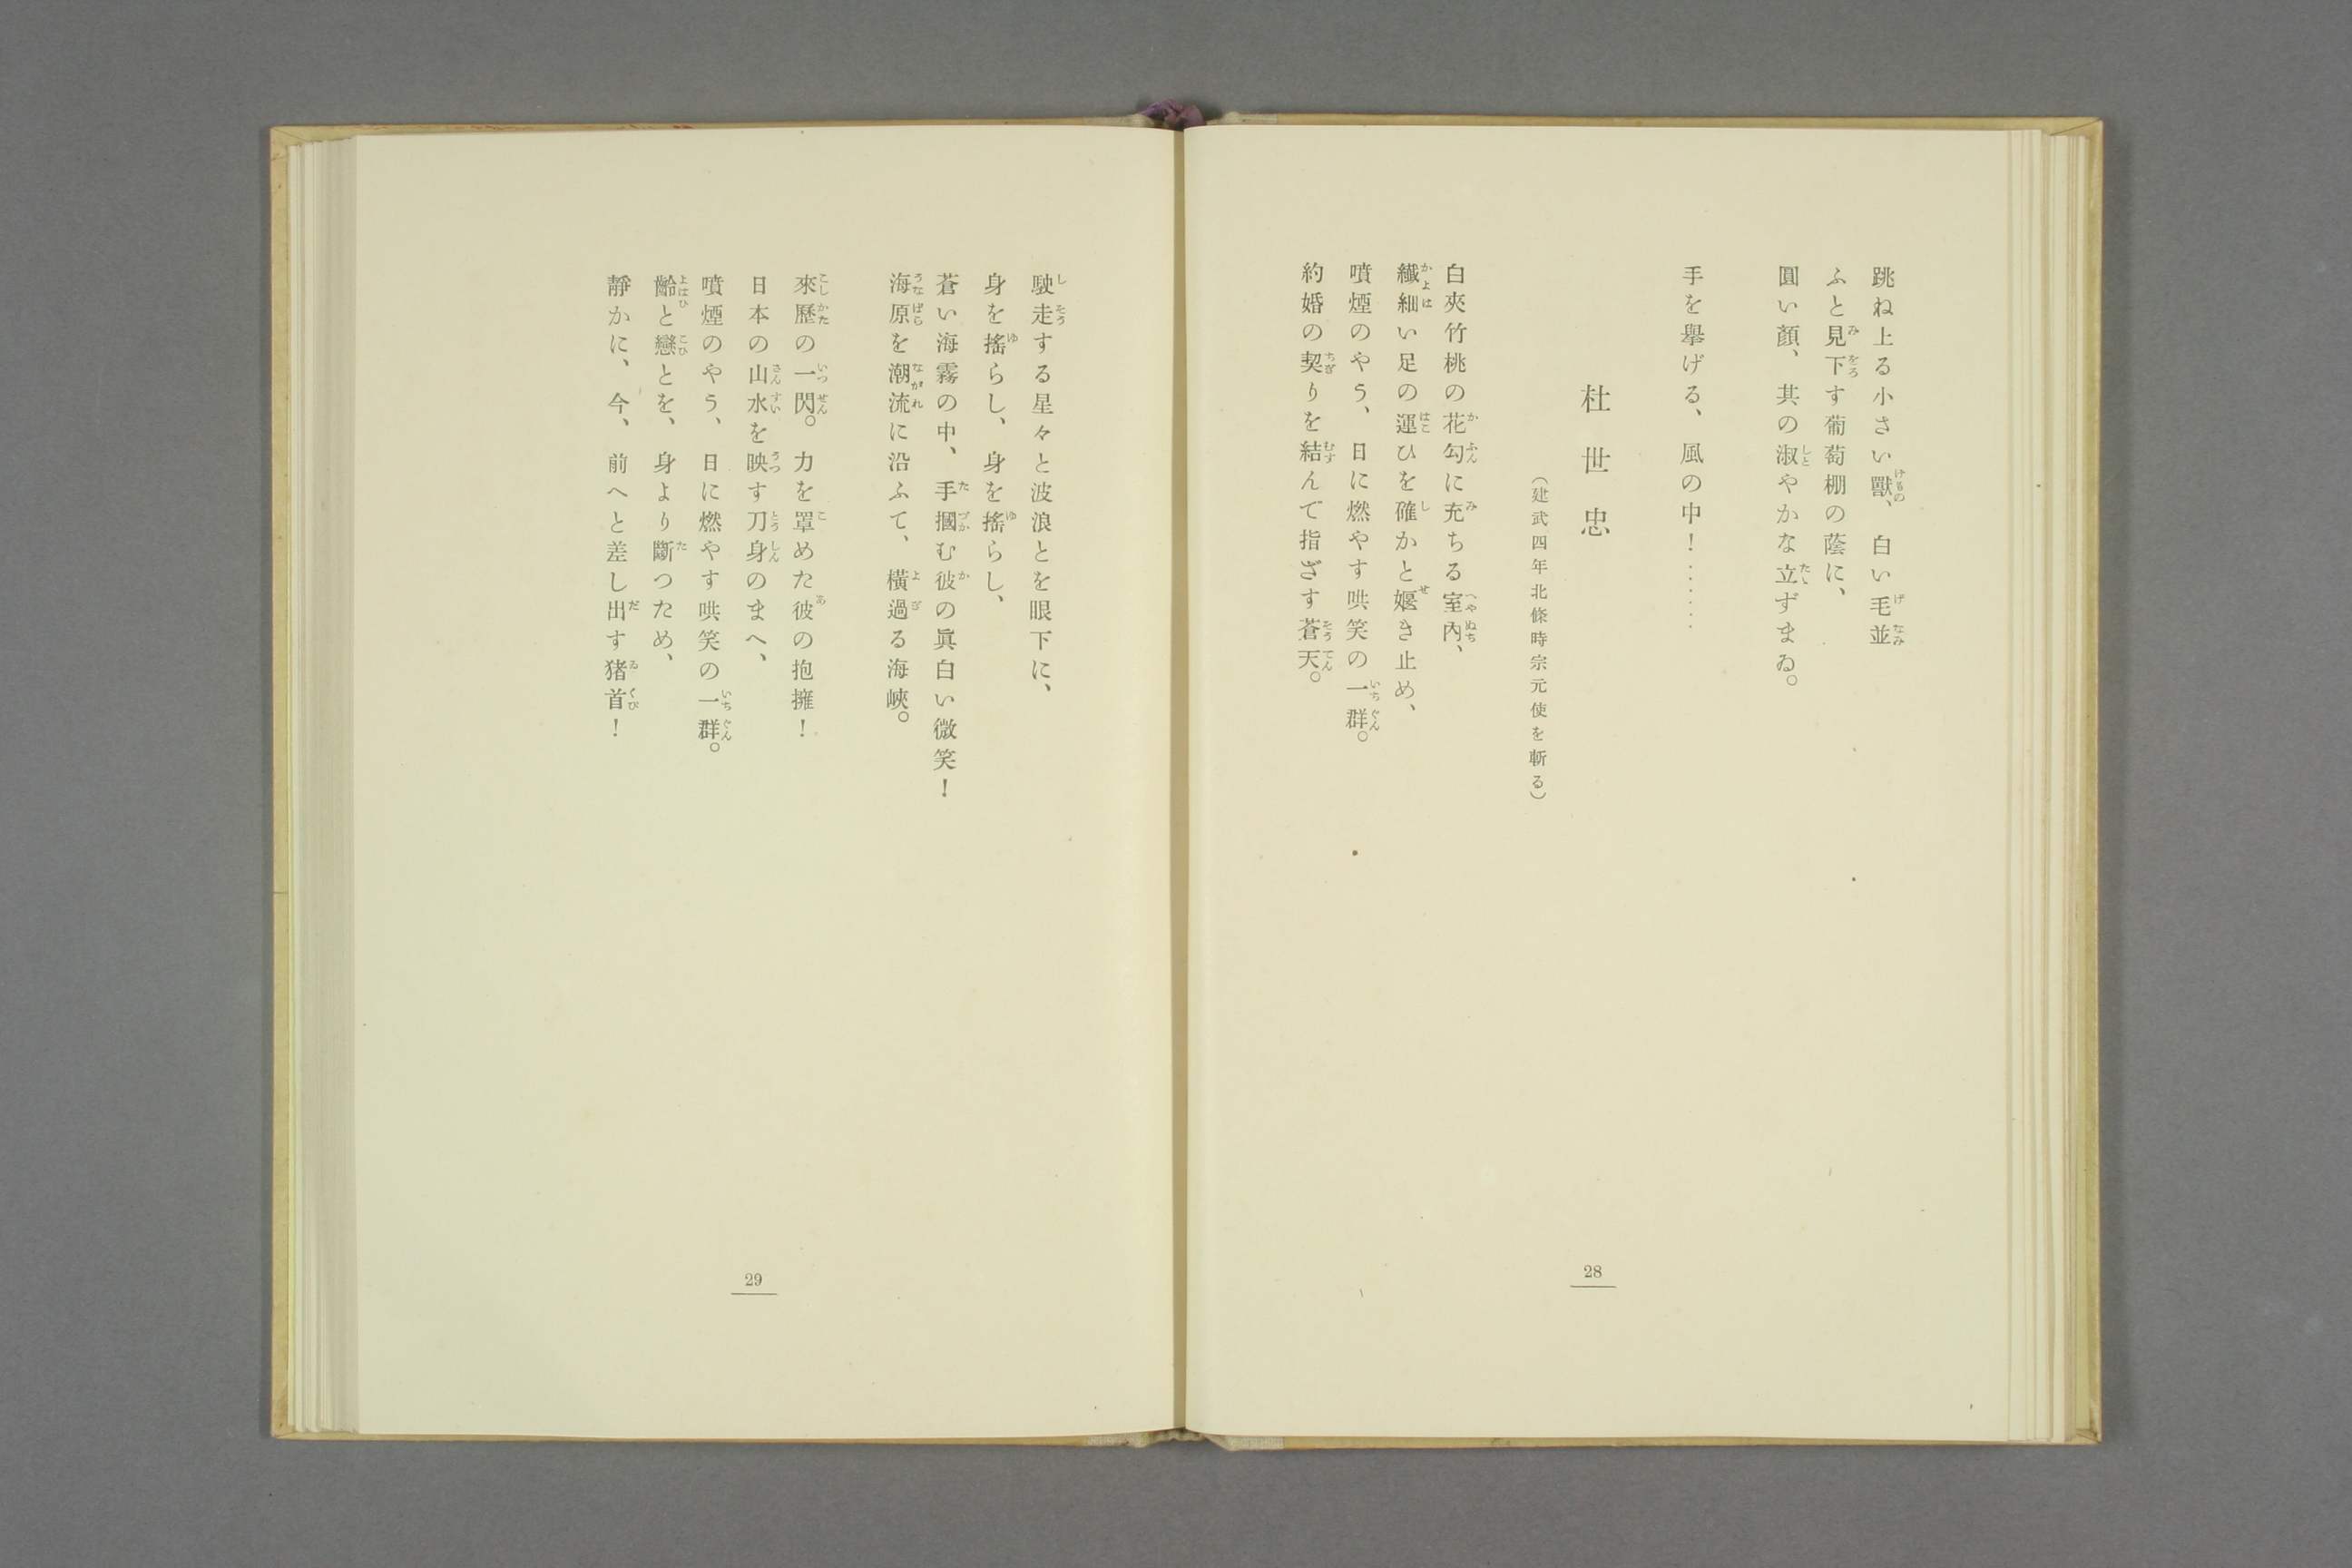 跳ね上る小さい獸、白い毛並
ふと見下す葡萄棚の蔭に、
圓い顏、其の淑やかな立ずまゐ。
手を擧げる、風の中！……
杜世忠
（建武四年北條時宗元使を斬る）
白夾竹桃の花勾に充ちる室內、
纎細い足の運ひを確かと堰き止め、
噴煙のやう、日に燃やす哄笑の一群。
約婚の契りを結んで指ざす蒼天。
28
駛走する星々と波浪とを眼下に、
身を搖らし、身を搖らし、
蒼い海霧の中、手摑む彼の眞白い微笑！
海原を潮流に沿ふて、橫過る海峽。
來歷の一閃。力を罩めた彼の抱擁！
日本の山水を映す刀身のまへ、
噴煙のやう、日に燃やす哄笑の一群。
齡と戀とを、身より斷つため、
靜かに、今、前へと差し出す猪首！
29